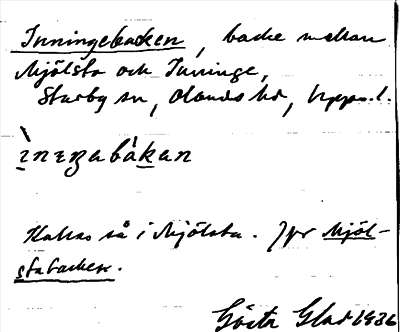 Inningebacken, backe mellan
Mjölsta och Inninge,
Starby sn, Olands hd, Upps. l.
ìneŋabàkan
Kallas så i Mjölsta. Jfr Mjöl-
stabacken.
Gösta Glad 1936